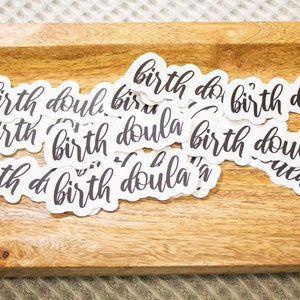 birth doula
birth doula
birth
birth doula
birth doula
birth doula
birth dou
birth doula